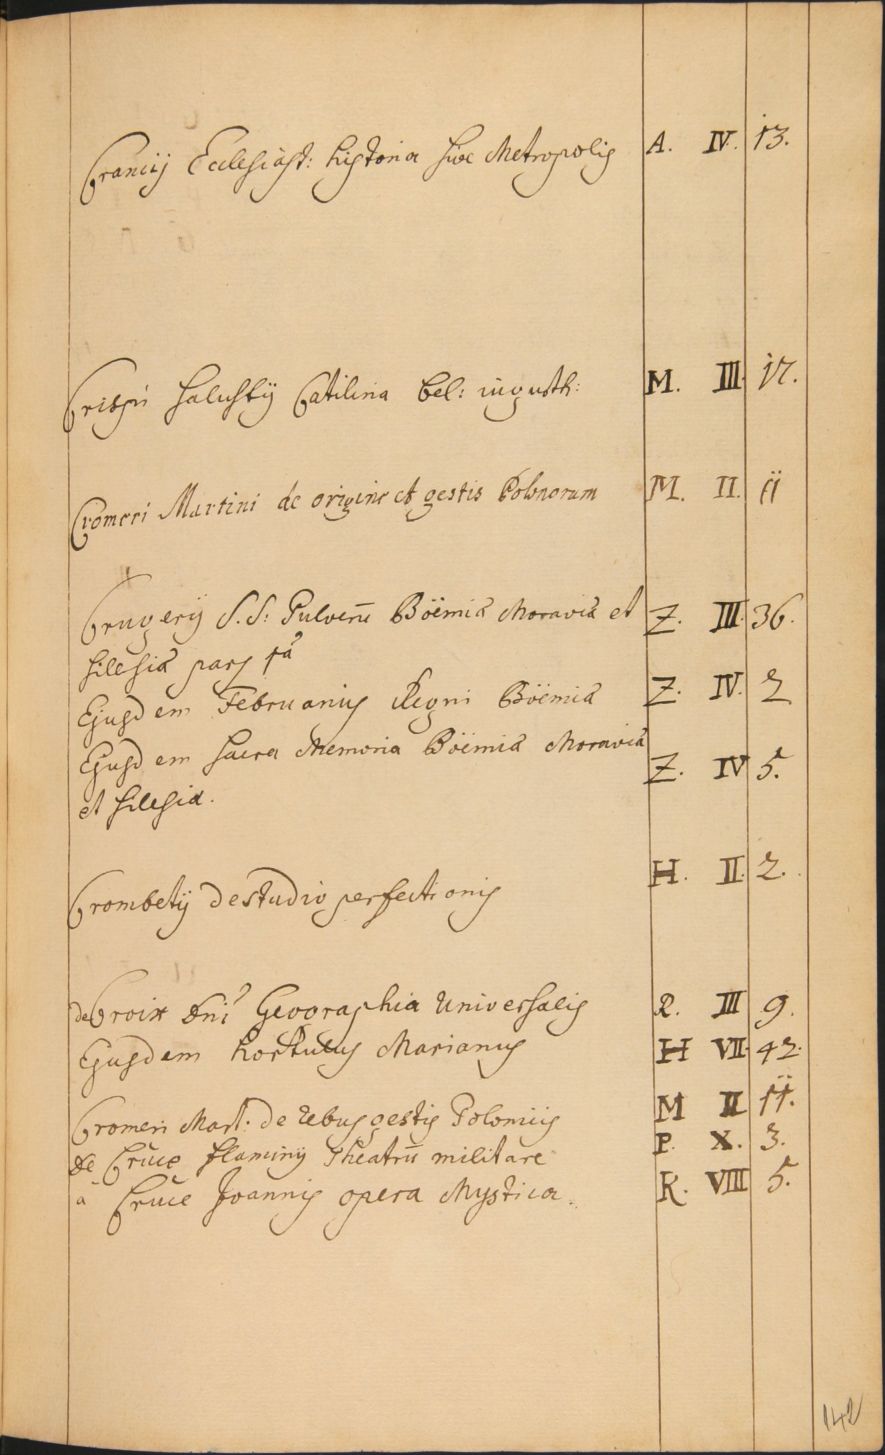 Crancij Ecclesiast: historia sive Metropolis A. IV. 13.
Crispi Salustij Catilina bel: iugurth: M. III. 17.
Cromeri Martini de origine et gestis Polonorum M. II. 11
Crugerij S.S. Pulveru Böemiæ Moraviæ et Z. III. 36.
Silesiæ pars 1a
Ejusdem Februarius Regni Böemiæ Z. IV. 2
Ejusdem Sacra Memoria Böemiæ Moraviæ Z. IV 5.
et Silesiæ.
Crombetij de studio perfectionis H. II. 2.
de Croix Dni Geographia Universalis R. III 9.
Ejusdem hortulus Marianus H VII. 42.
Cromeri Mart: de rebus gestis Polonicis M II 11.
de Cruce Flaminij Theatru militare P. X. 3.
a Cruce Joannis opera Mystica. R. VIII 5.
142